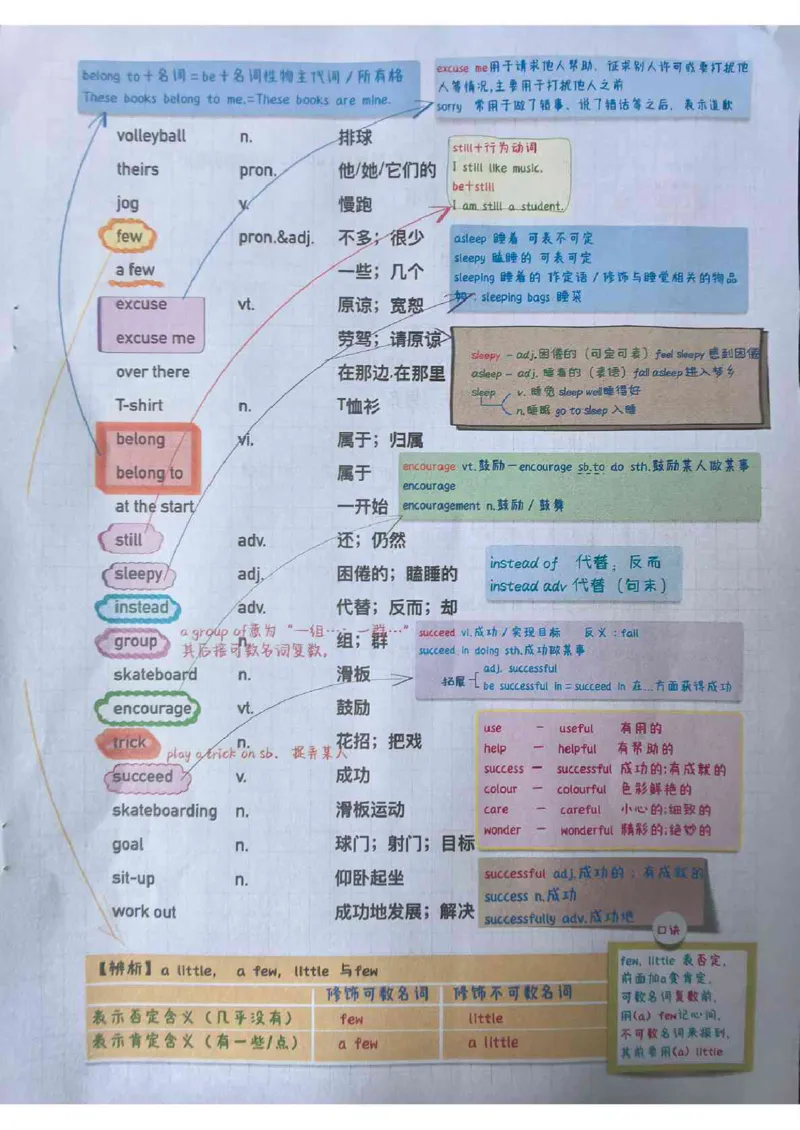 belong to＋名词＝be＋名词性物主代词/所有格
These books belong to me.=These books are mine.
excuse me用于请求他人帮助、证求别人许可或要打扰他
人等情况,主要用于打扰他人之前
sorry 常用于做了错事、说了错话等之后，表示道歉
volleyball n. 排球
theirs pron. 他/她/它们的
jog v. 慢跑
few pron.&adj. 不多；很少
a few 一些；几个
excuse vt. 原谅；宽恕
excuse me 劳驾；请原谅
over there 在那边.在那里
T-shirt n. T恤衫
belong vi. 属于；归属
belong to 属于
at the start 一开始
still adv. 还；仍然
sleepy adj. 困倦的；瞌睡的
instead adv. 代替；反而；却
group n. 组；群
a group of意为“一组…；一群…”
其后接可数名词复数。
skateboard n. 滑板
encourage vt. 鼓励
trick n. 花招；把戏
play a trick on sb. 捉弄某人
succeed v. 成功
skateboarding n. 滑板运动
goal n. 球门；射门；目标
sit-up n. 仰卧起坐
work out 成功地发展；解决
still＋行为动词
I still like music.
be＋still
I am still a student.
asleep 睡着 可表不可定
sleepy 瞌睡的 可表可定
sleeping 睡着的 作定语/修饰与睡觉相关的物品
如：sleeping bags 睡袋
sleepy - adj.困倦的（可定可表）feel sleepy 感到困倦
asleep - adj. 睡着的（表语）fall asleep 进入梦乡
sleep v. 睡觉 sleep well睡得好
n.睡眠 go to sleep 入睡
encourage vt.鼓励－encourage sb.to do sth.鼓励某人做某事
encourage
encouragement n.鼓励/鼓舞
instead of 代替；反而
instead adv 代替（句末）
succeed vi.成功/实现目标 反义：fail
succeed in doing sth.成功做某事
拓展 adj. successful
be successful in=succeed in 在…方面获得成功
use － useful 有用的
help － helpful 有帮助的
success － successful 成功的;有成就的
colour － colourful 色彩鲜艳的
care － careful 小心的;细致的
wonder － wonderful 精彩的;绝妙的
successful adj.成功的；有成就的
success n.成功
successfully adv.成功地
【辨析】a little, a few, little 与few
修饰可数名词 修饰不可数名词
表示否定含义（几乎没有） few little
表示肯定含义（有一些/点） a few a little
口诀
few, little 表否定，
前面加a变肯定，
可数名词复数前，
用(a) few记心间，
不可数名词来报到，
其前要用(a) little